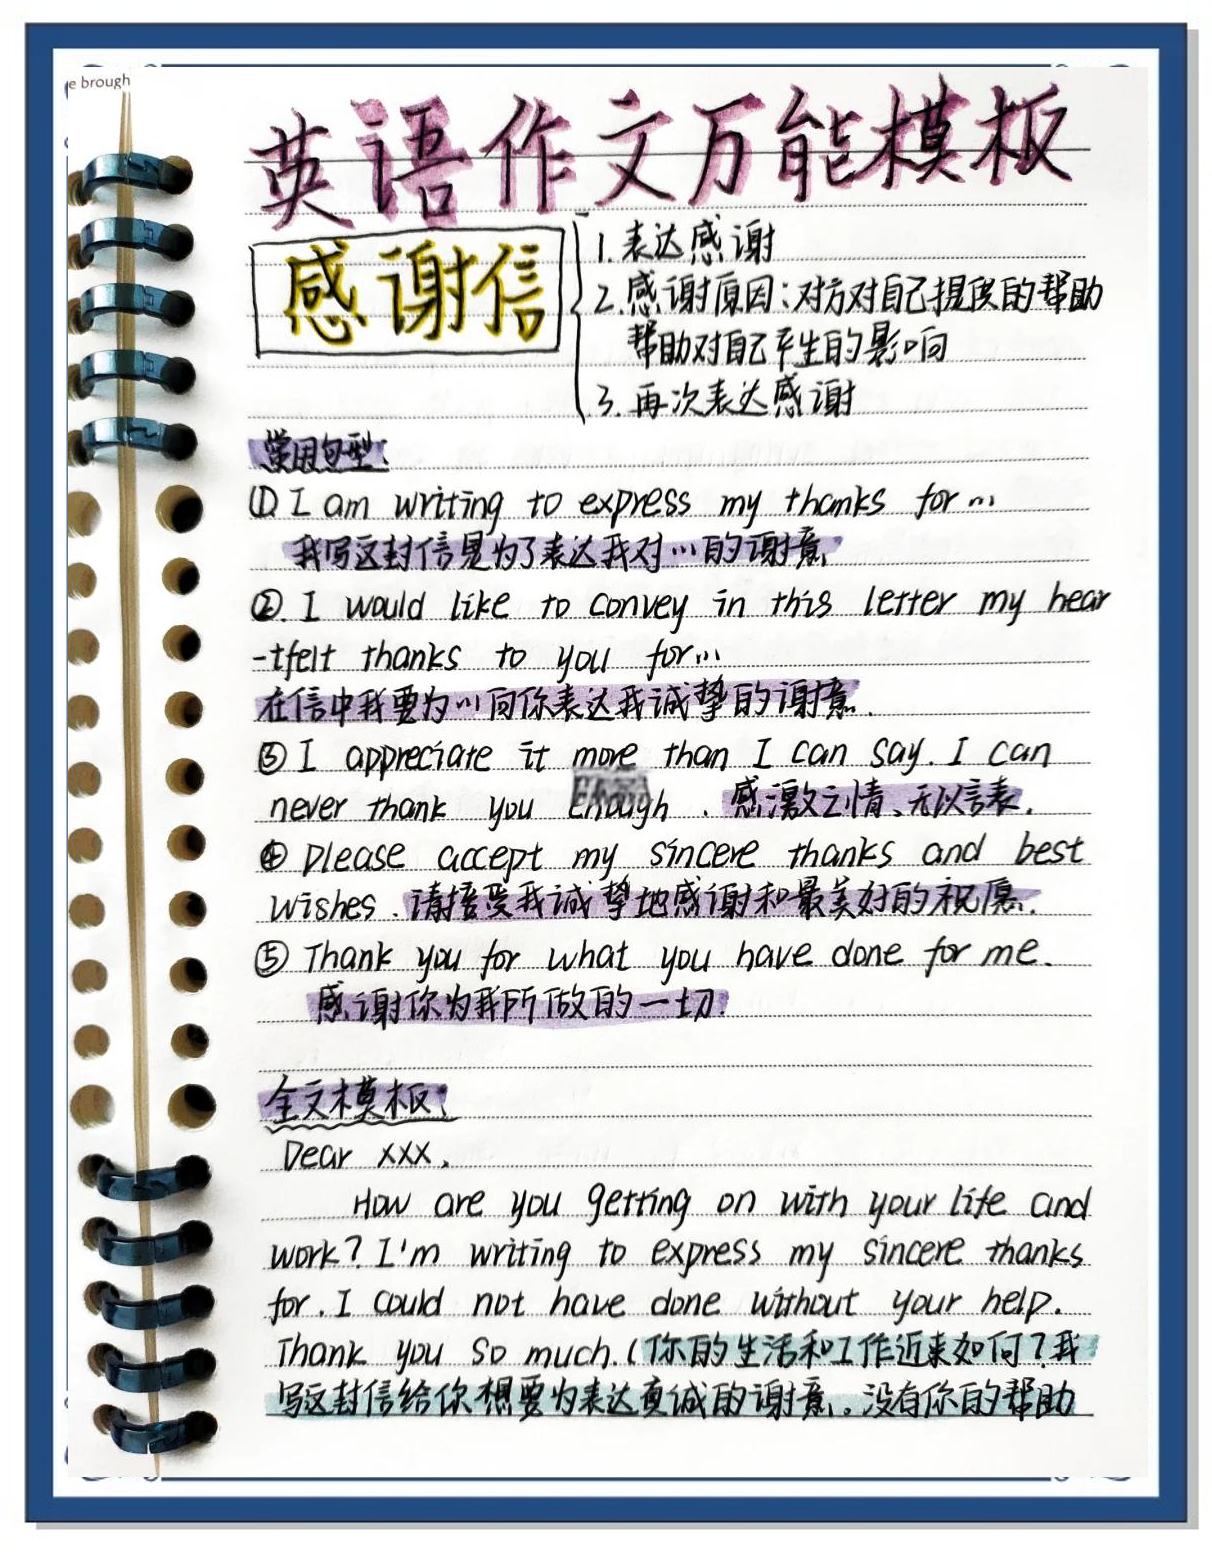 e brough
英语作文万能模板
感谢信
1. 表达感谢
2. 感谢原因:对方对自己提供的帮助
帮助对自己产生的影响
3. 再次表达感谢
常用句型:
① I am writing to express my thanks for…
我写这封信是为了表达我对…的谢意.
②. I would like to convey in this letter my hear
-tfelt thanks to you for…
在信中我要为…向你表达我诚挚的谢意.
③ I appreciate it more than I can say. I can
never thank you enough. 感激之情、无以言表.
④ Please accept my sincere thanks and best
wishes. 请接受我诚挚地感谢和最美好的祝愿.
⑤ Thank you for what you have done for me.
感谢你为我所做的一切.
全文模板:
Dear xxx,
How are you getting on with your life and
work? I'm writing to express my sincere thanks
for. I could not have done without your help.
Thank you so much. (你的生活和工作近来如何?我
写这封信给你想要为表达真诚的谢意。没有你的帮助